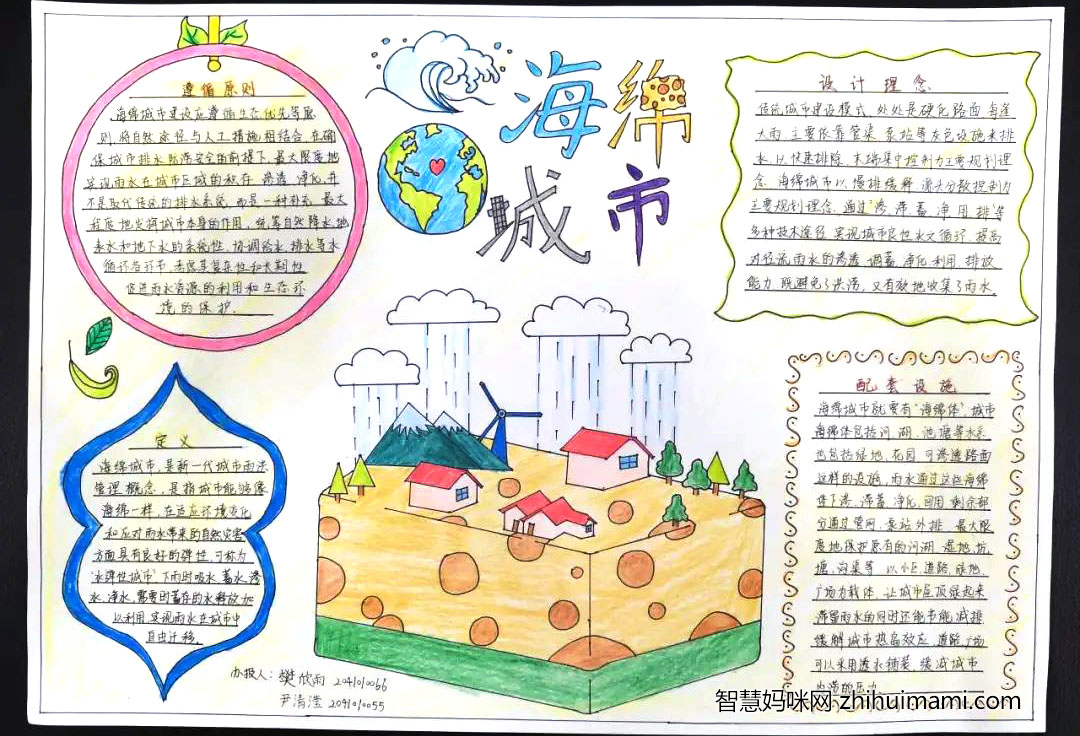 海绵
城市
遵循原则
海绵城市建设应遵循生态优先等原
则,将自然途径与人工措施相结合,在确
保城市排水防涝安全的前提下,最大限度地
实现雨水在城市区域的积存、渗透、净化,并
不是取代传统的排水系统,而是一种补充,最大
程度地发挥城市本身的作用,统筹自然降水,地
表水和地下水的系统性,协调给水、排水等水
循环各环节,考虑其复杂性和长期性
促进雨水资源的利用和生态环
境的保护.
设计理念
传统城市建设模式,处处是硬化路面,每逢
大雨,主要依靠管渠、泵站等灰色设施来排
水,以快速排除、末端集中控制为主要规划理
念,海绵城市以,慢排缓释、源头分散控制为
主要规划理念,通过"渗、滞、蓄、净、用、排"等
多种技术途径,实现城市良性水文循环,提高
对径流雨水的渗透、调蓄、净化、利用、排放
能力,既避免了洪涝,又有效地收集了雨水。
定义
海绵城市,是新一代城市雨洪
管理概念,是指城市能够像
海绵一样,在适应环境变化
和应对雨水带来的自然灾害
方面具有良好的弹性,可称为
"水弹性城市",下雨时吸水、蓄水、渗
水、净水,需要时蓄存的水释放加
以利用,实现雨水在城市中
自由迁移。
配套设施
海绵城市就要有"海绵体",城市
海绵体包括河、湖、池塘等水系
也包括绿地、花园、可渗透路面
这样的设施,雨水通过这些海绵
体下渗、滞蓄、净化、回用,剩余部
分通过管网、泵站外排,最大限
度地保护原有的河湖、湿地、坑
塘、沟渠等,以小区道路、绿地、
广场为载体,让城市屋顶绿起来
滞留雨水的同时还能节能、减排
缓解城市热岛效应,道路、广场
可以采用透水铺装,缓减城市
内涝的压力
办报人:樊欣雨 204101066
尹清滢 2091010055
智慧妈咪网 zhihuimami.com